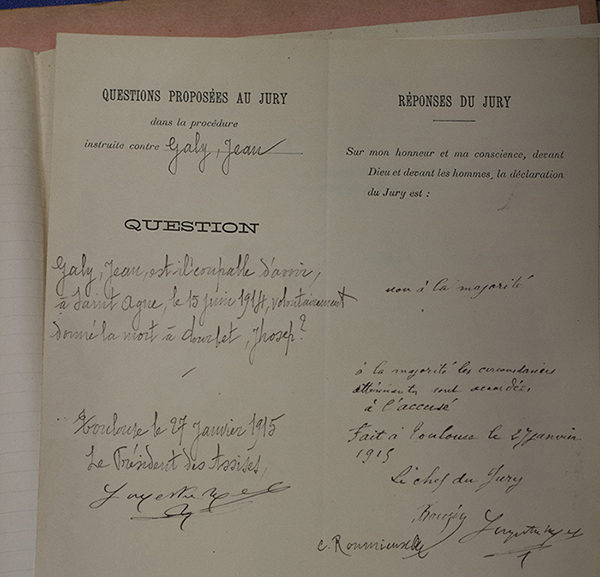 QUESTIONS PROPOSÉES AU JURY
dans la procédure
instruite contre Galy, Jean
QUESTION
Galy, Jean, est-il coupable d'avoir,
à Saint Agne, le 15 juin 1914, volontairement
donné la mort à Jhosep?
Toulouse le 27 Janvier 1915
Le Président des Assises,
RÉPONSES DU JURY
Sur mon honneur et ma conscience, devant
Dieu et devant les hommes, la déclaration
du Jury est :
non à la majorité
à la majorité les circonstances
atténuantes sont accordées
à l'accusé
Fait à Toulouse le 27 janvier
1915
Le chef du Jury